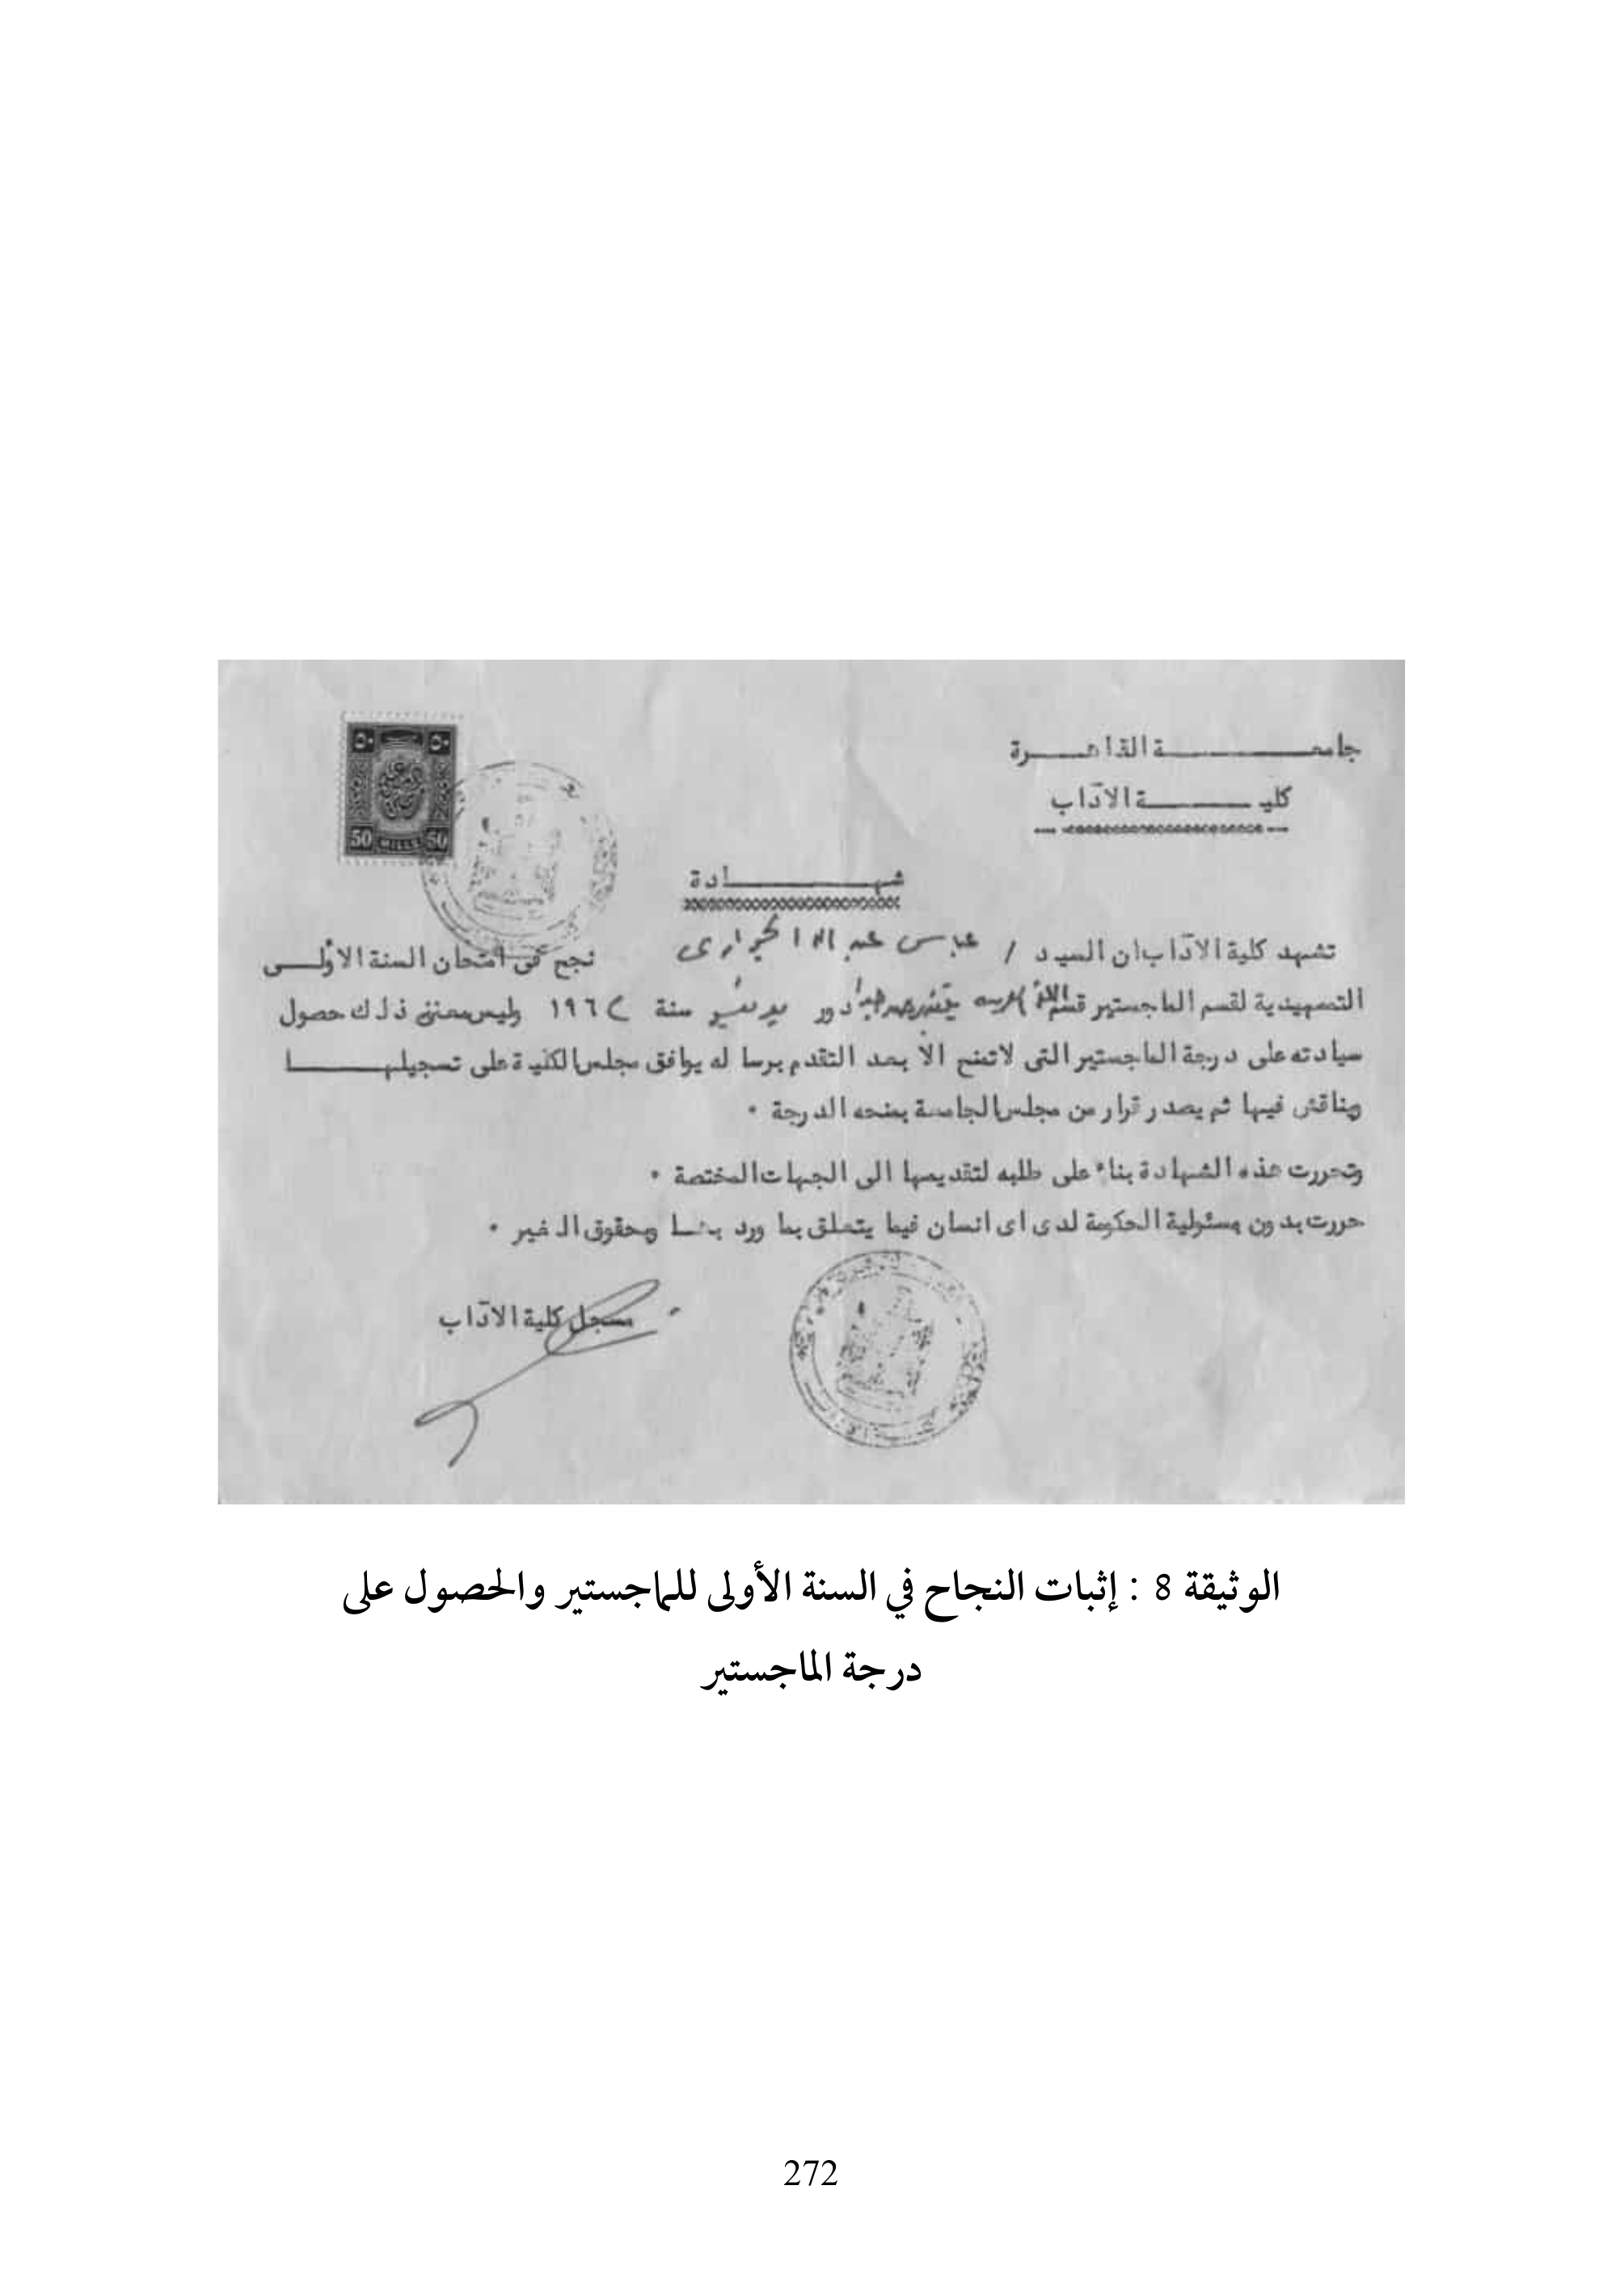 جامعة القاهرة
كلية الآداب
٥٠ ٥٠
50 MILLS 50
شهادة
تشهد كلية الآداب ان السيد / عباس عبد الله الجراري نجح في امتحان السنة الأولى
التمهيدية لقسم الماجستير قسم دور سنة ١٩٦٢ وليس معنى ذلك حصول
سيادته على درجة الماجستير التى لاتمنح الا بعد التقدم برسالة يوافق مجلس الكلية على تسجيلها
ويناقش فيها ثم يصدر قرار من مجلس الجامعة بمنحه الدرجة .
وتحررت هذه الشهادة بناء على طلبه لتقديمها الى الجهات المختصة .
حررت بدون مسئولية الحكومة لدى اى انسان فيما يتعلق بما ورد بها وحقوق الغير .
مسجل كلية الآداب
الوثيقة 8 : إثبات النجاح في السنة الأولى للماجستير والحصول على
درجة الماجستير
272